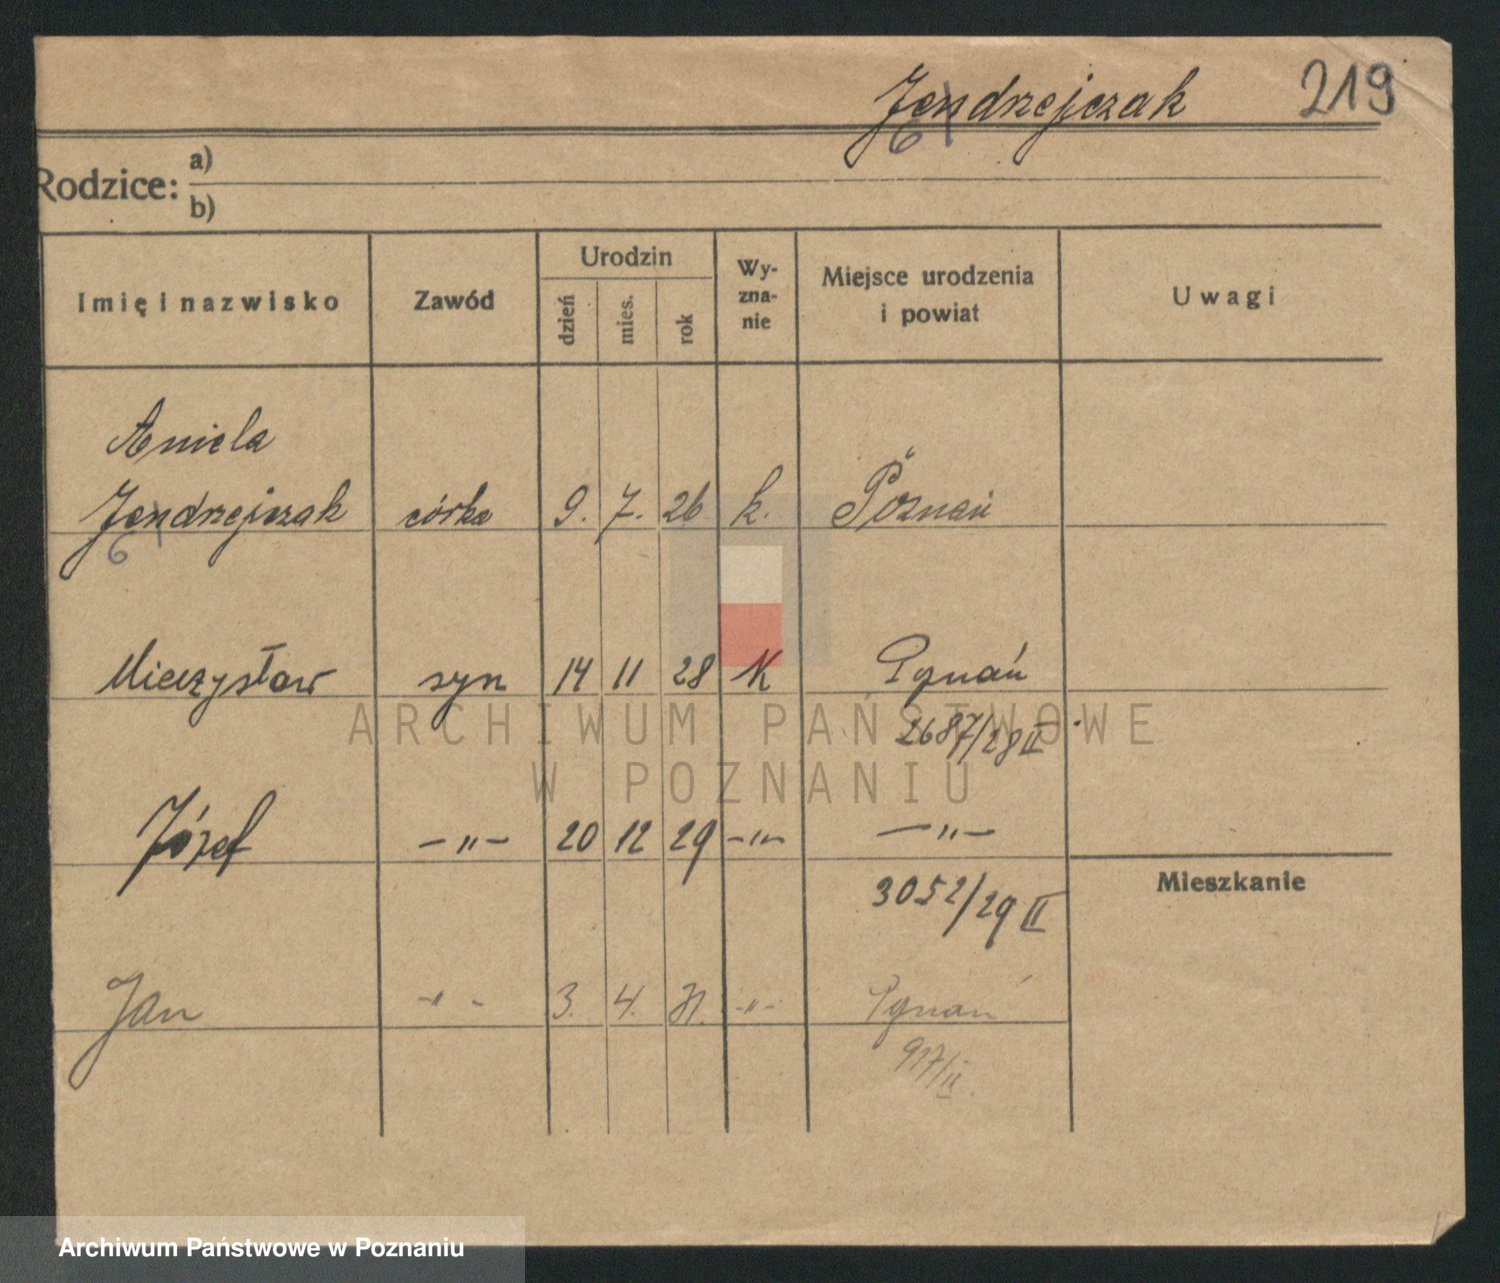 Jendrzejczak 219
Rodzice: a)
b)
Imię i nazwisko Zawód Urodzin dzień mies. rok Wyznanie Miejsce urodzenia i powiat Uwagi
Aniela
Jendrzejczak córka 9. 7. 26 k. Poznań
Mieczysław syn 14 11 28 K Poznań
2687/28 II
Józef -"- 20 12 29 -"- -"-
Mieszkanie
3052/29 II
Jan -"- 3. 4. 31. -"- Poznań
917/II
ARCHIWUM PAŃSTWOWE
W POZNANIU
Archiwum Państwowe w Poznaniu